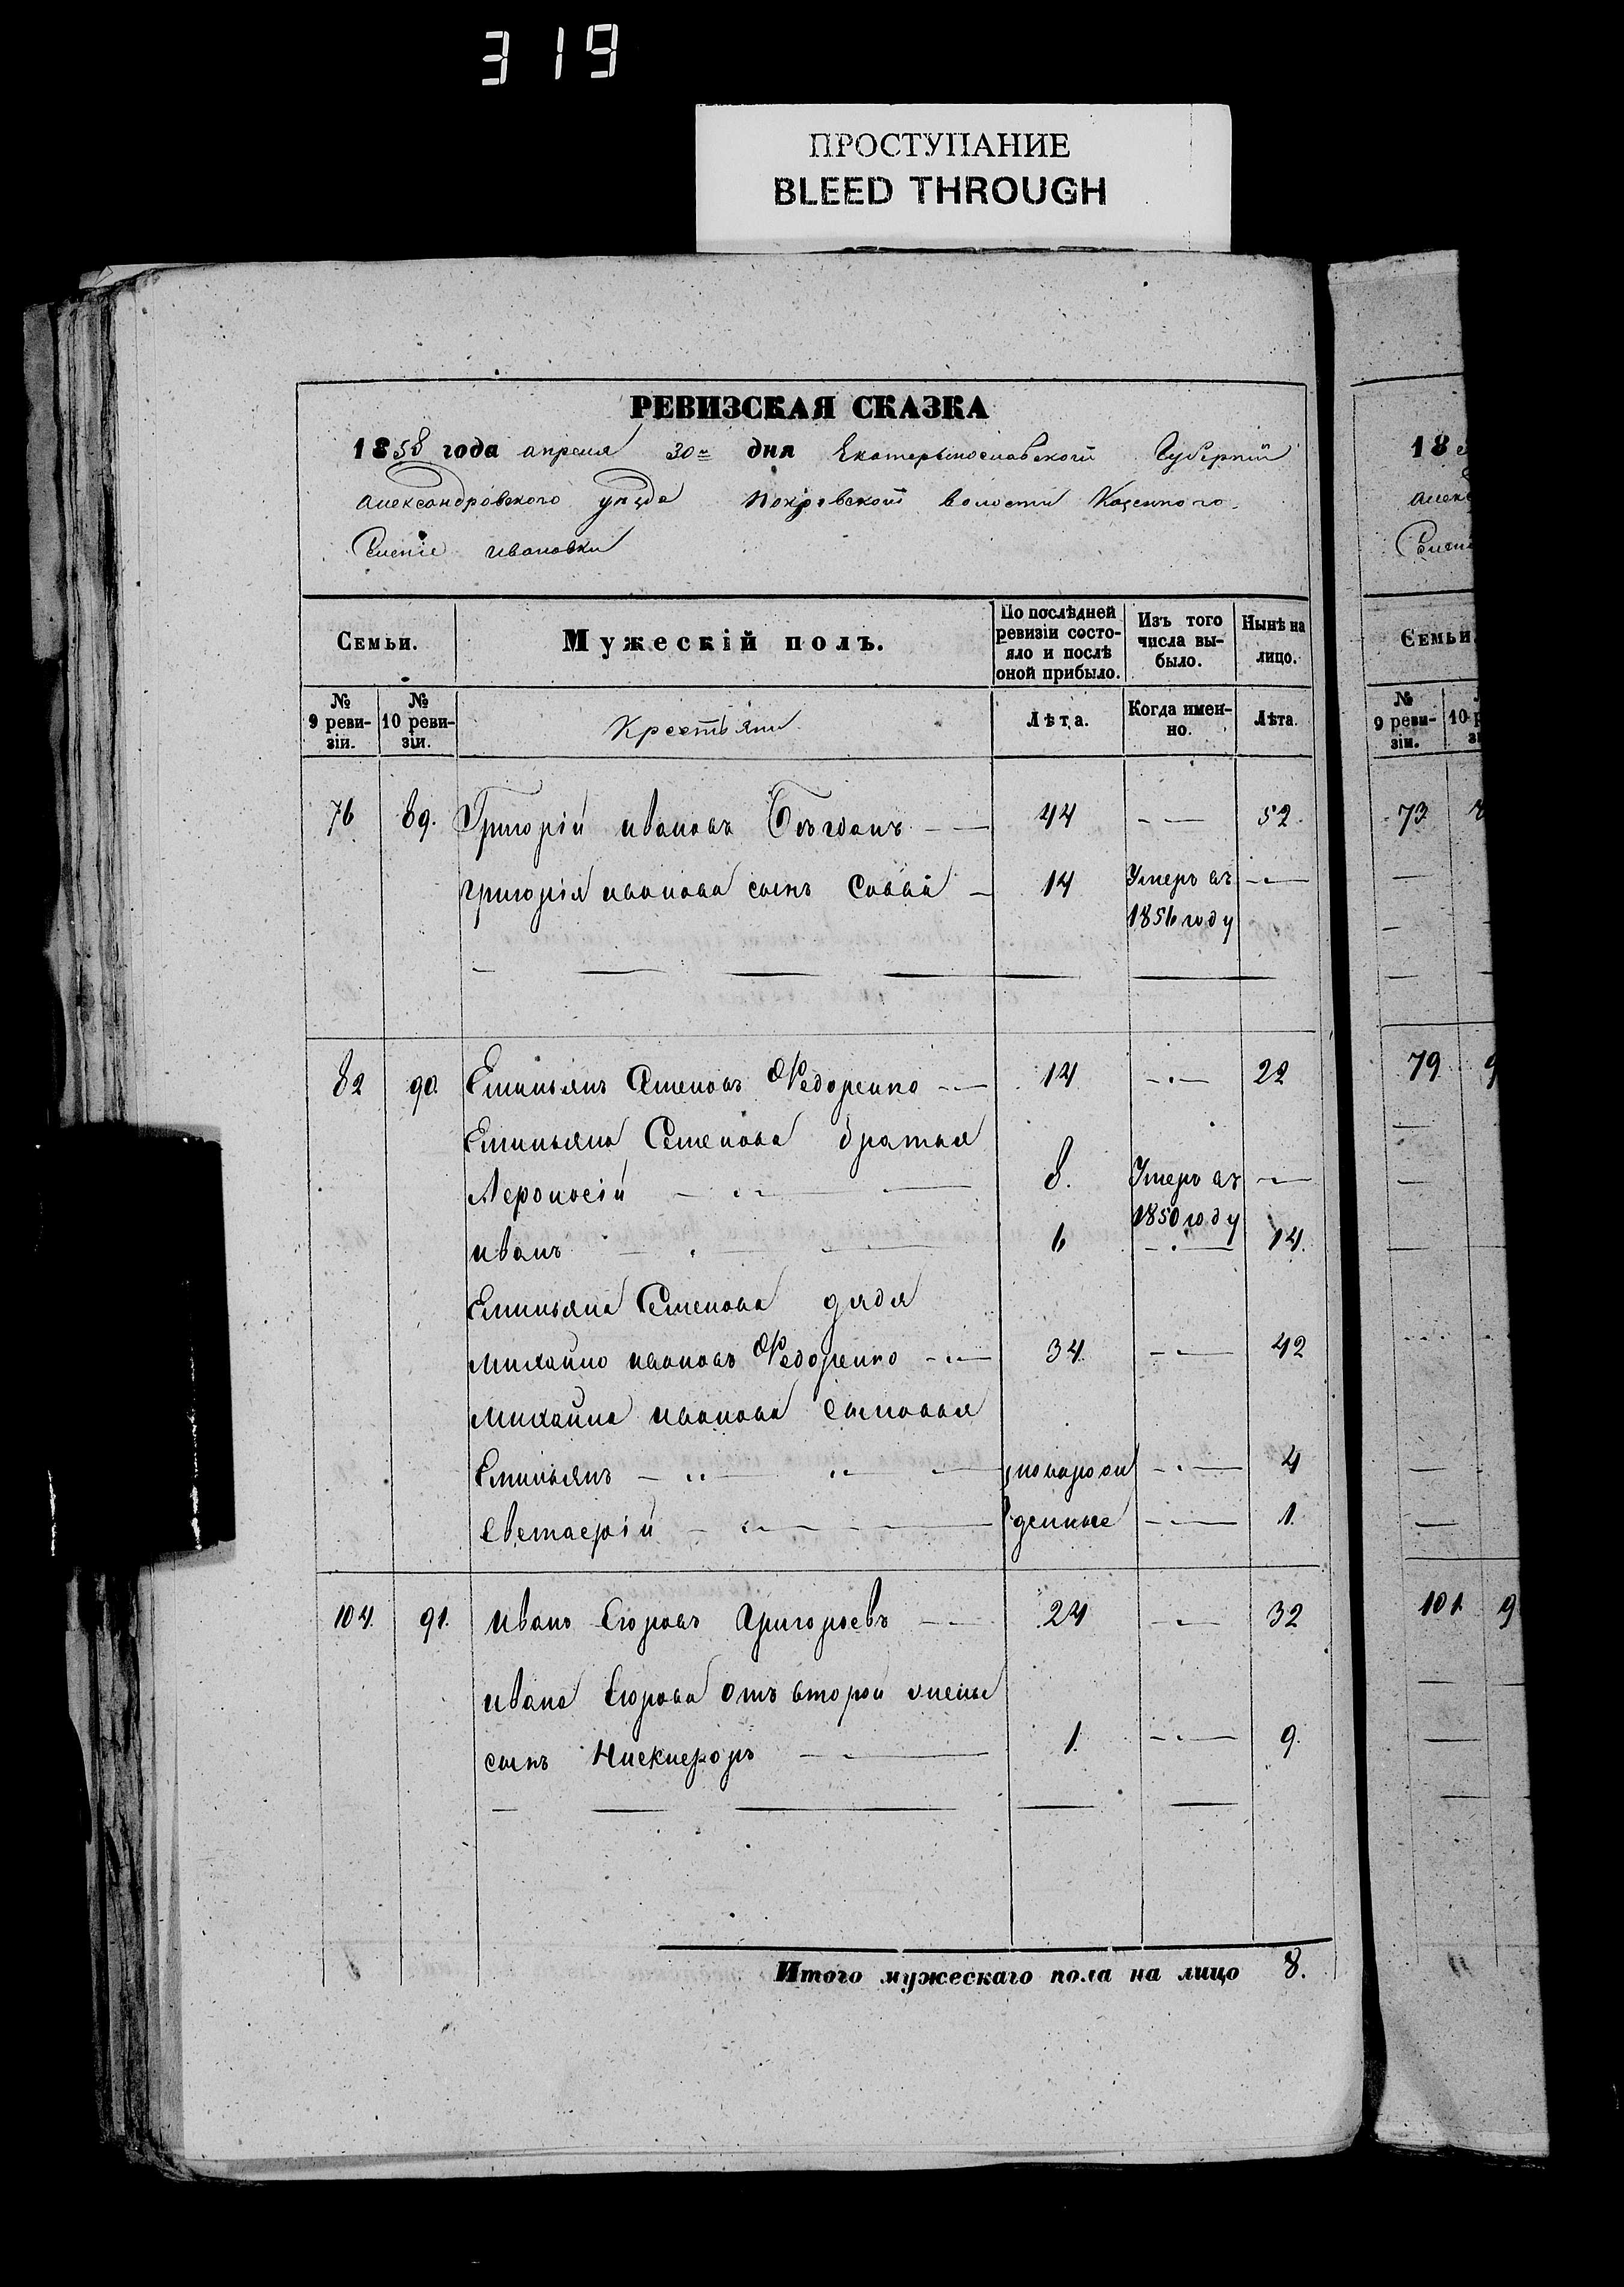 319
ПРОСТУПАНИЕ
BLEED THROUGH
РЕВИЗСКАЯ СКАЗКА
1858 года апреля 30го дня Екатерынославской Губернїи
александровского уезда покровской волости Казенного
Селенїе ивановки
Семьи. Мужескій полъ. По послѣдней ревизіи состояло и послѣ оной прибыло. Изъ того числа выбыло. Нынѣ на лицо.
№ 9 ревизіи. № 10 ревизіи. Крестьяни Лѣта. Когда именно. Лѣта.
76 89. Григорій ивановъ Богданъ 44 52.
григорія иванова сынъ Савва 14 Умеръ въ
1856 году
82 90. Емильянъ Семеновъ Федоренко 14 22
Емильяна Семенова братья
8. Умеръ въ
1850 году
иванъ 6 14.
Емильяна Семенова дядя
михайло ивановъ Федоренко 34. 42
михайла иванова сыновья
Емильянъ новорож 4
денные 1.
104. 91. иванъ Егоровъ Григорьевъ 24 32
ивана Егорова отъ второй жены
сынъ 1. 9.
Итого мужескаго пола на лицо 8.
18
алекс
Селені
Семьи
№ 9 ревизіи. 10
73
79 9
101 9